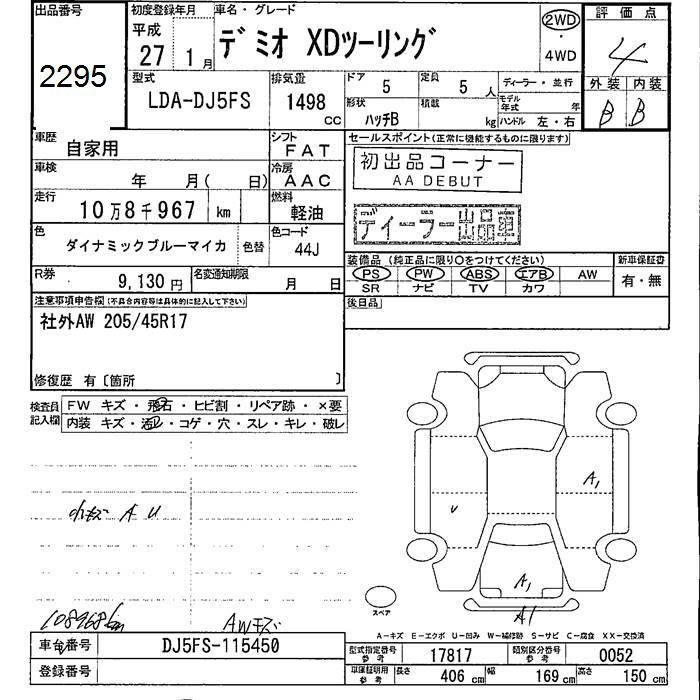 出品番号
2295
初度登録年月
平成
27 1月
車名・グレード
デミオ XDツーリング
2WD
・
4WD
評価点
4
外装 内装
B B
型式
LDA-DJ5FS
排気量
1498
cc
ドア
5
定員
5人
形状
ハッチB
積載
kg
ディーラー・並行
モデル年式 年
ハンドル 左・右
車歴
自家用
シフト
FAT
車検
年 月( 日)
冷房
AAC
走行
10万8千967 km
燃料
軽油
色
ダイナミックブルーマイカ
色替
色コード
44J
R券
9,130円
名変通知期限
月 日
セールスポイント(正常に機能するものに限ります)
初出品コーナー
AA DEBUT
ディーラー出品車
装備品 (純正品に限り○をつけてください)
PS PW ABS エアB AW
SR ナビ TV カワ
新車保証書
有・無
後日品
注意事項申告欄(不具合内容等は具体的に記入して下さい)
社外AW 205/45R17
修復歴 有〔箇所 〕
検査員記入欄
FW キズ・飛石・ヒビ割・リペア跡・×要
内装 キズ・汚レ・コゲ・穴・スレ・キレ・破レ
小キズ A U
108968km
AWキズ
A1
U
A1
A1
スペア
A-キズ E-エクボ U-凹み W-補修跡 S-サビ C-腐食 XX-交換済
車台番号
DJ5FS-115450
登録番号
型式指定番号
参考
17817
類別区分番号
参考
0052
車庫証明用
参考
長さ 406 cm 幅 169 cm 高さ 150 cm